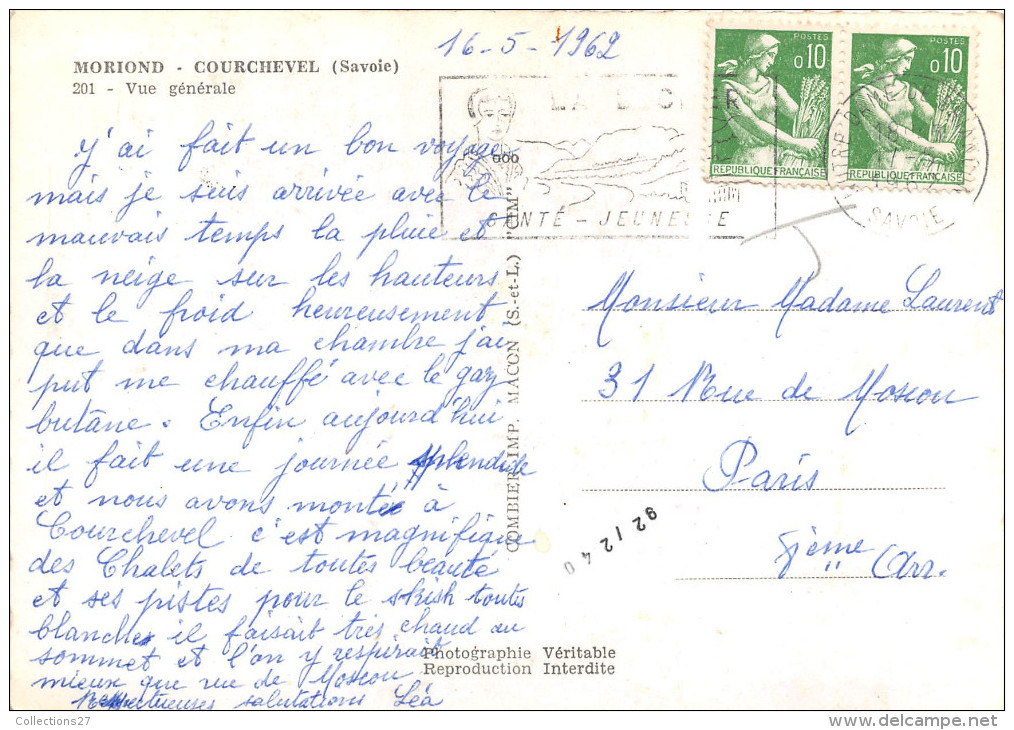 16-5-1962
MORIOND - COURCHEVEL (Savoie)
201 - Vue générale
j'ai fait un bon voyage
mais je suis arrivée avec le
mauvais temps la pluie et
la neige sur les hauteurs
et le froid heureusement
que dans ma chambre j'ai
put me chauffé avec le gaz
butâne. Enfin aujourd'hui
il fait une journée splendide
et nous avons montée à
Courchevel c'est magnifique
des Chalets de toutes beauté
et ses pistes pour le skish toutes
blanches il faisait très chaud au
sommet et l'on y respirait
mieux que rue de Moscou
Respectueuses salutations Léa
SANTÉ - JEUNESSE
POSTES
0,10
REPUBLIQUE FRANÇAISE
POSTES
0,10
REPUBLIQUE FRANÇAISE
SAVOIE
COMBIER IMP. MACON (S.-et-L.) "CIM"
Monsieur Madame Laurent
31 Rue de Moscou
Paris
8ième Arr.
92/240
Photographie Véritable
Reproduction Interdite
Collections27
delcampe.net